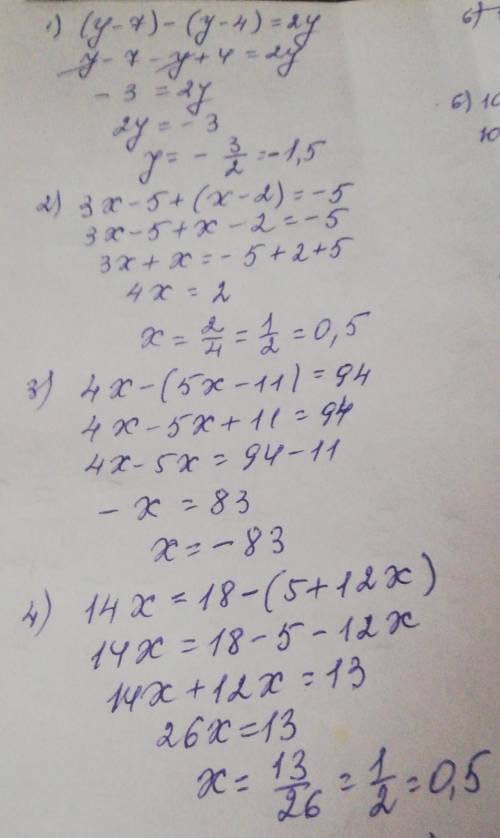 1) (y-7)-(y-4)=2y
y-7-y+4=2y
-3=2y
2y=-3
y=-3/2=-1,5
2) 3x-5+(x-2)=-5
3x-5+x-2=-5
3x+x=-5+2+5
4x=2
x=2/4=1/2=0,5
3) 4x-(5x-11)=94
4x-5x+11=94
4x-5x=94-11
-x=83
x=-83
4) 14x=18-(5+12x)
14x=18-5-12x
14x+12x=13
26x=13
x=13/26=1/2=0,5
6) 10
10